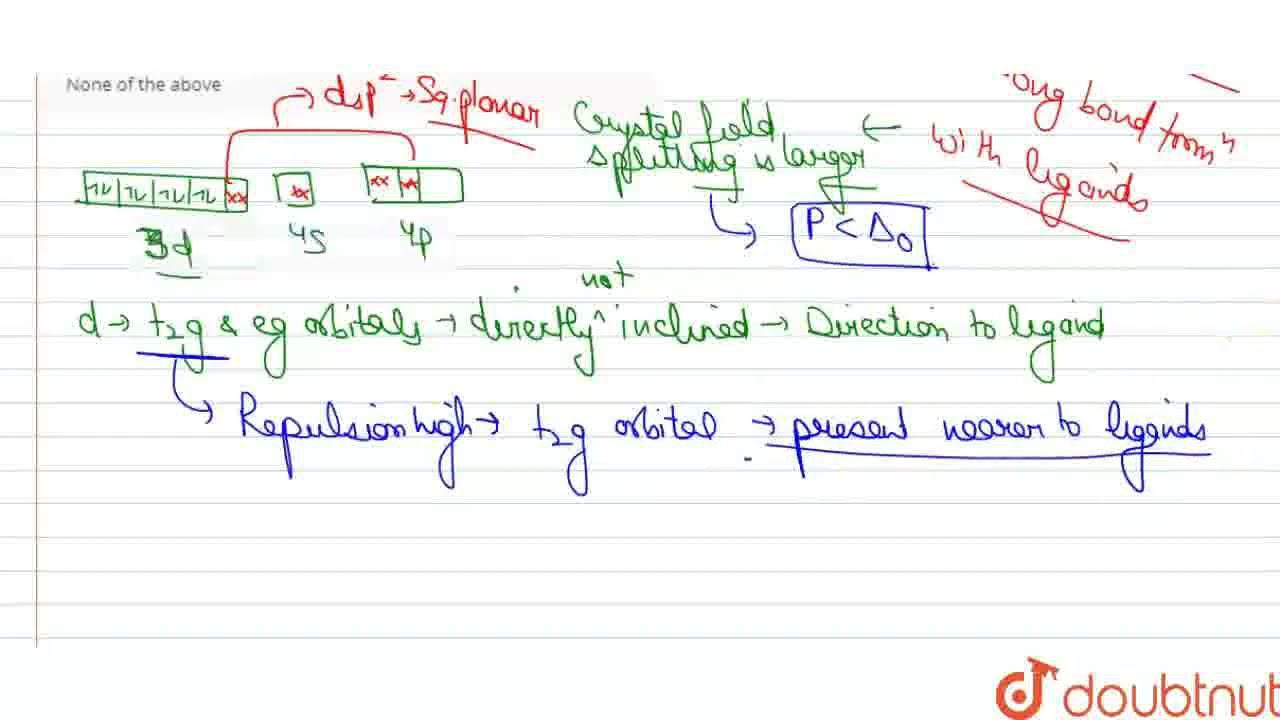 None of the above
dsp² → Sq. planar
Crystal field
splitting is larger
←
ong bond form^n
with ligands
1L 1L 1L 1L xx xx xx xx
3d 4S 4P
P < Δ₀
not
d → t₂g & eg orbitals → directly^ inclined → Direction to ligand
Repulsion high → t₂g orbital → present nearer to ligands
doubtnut